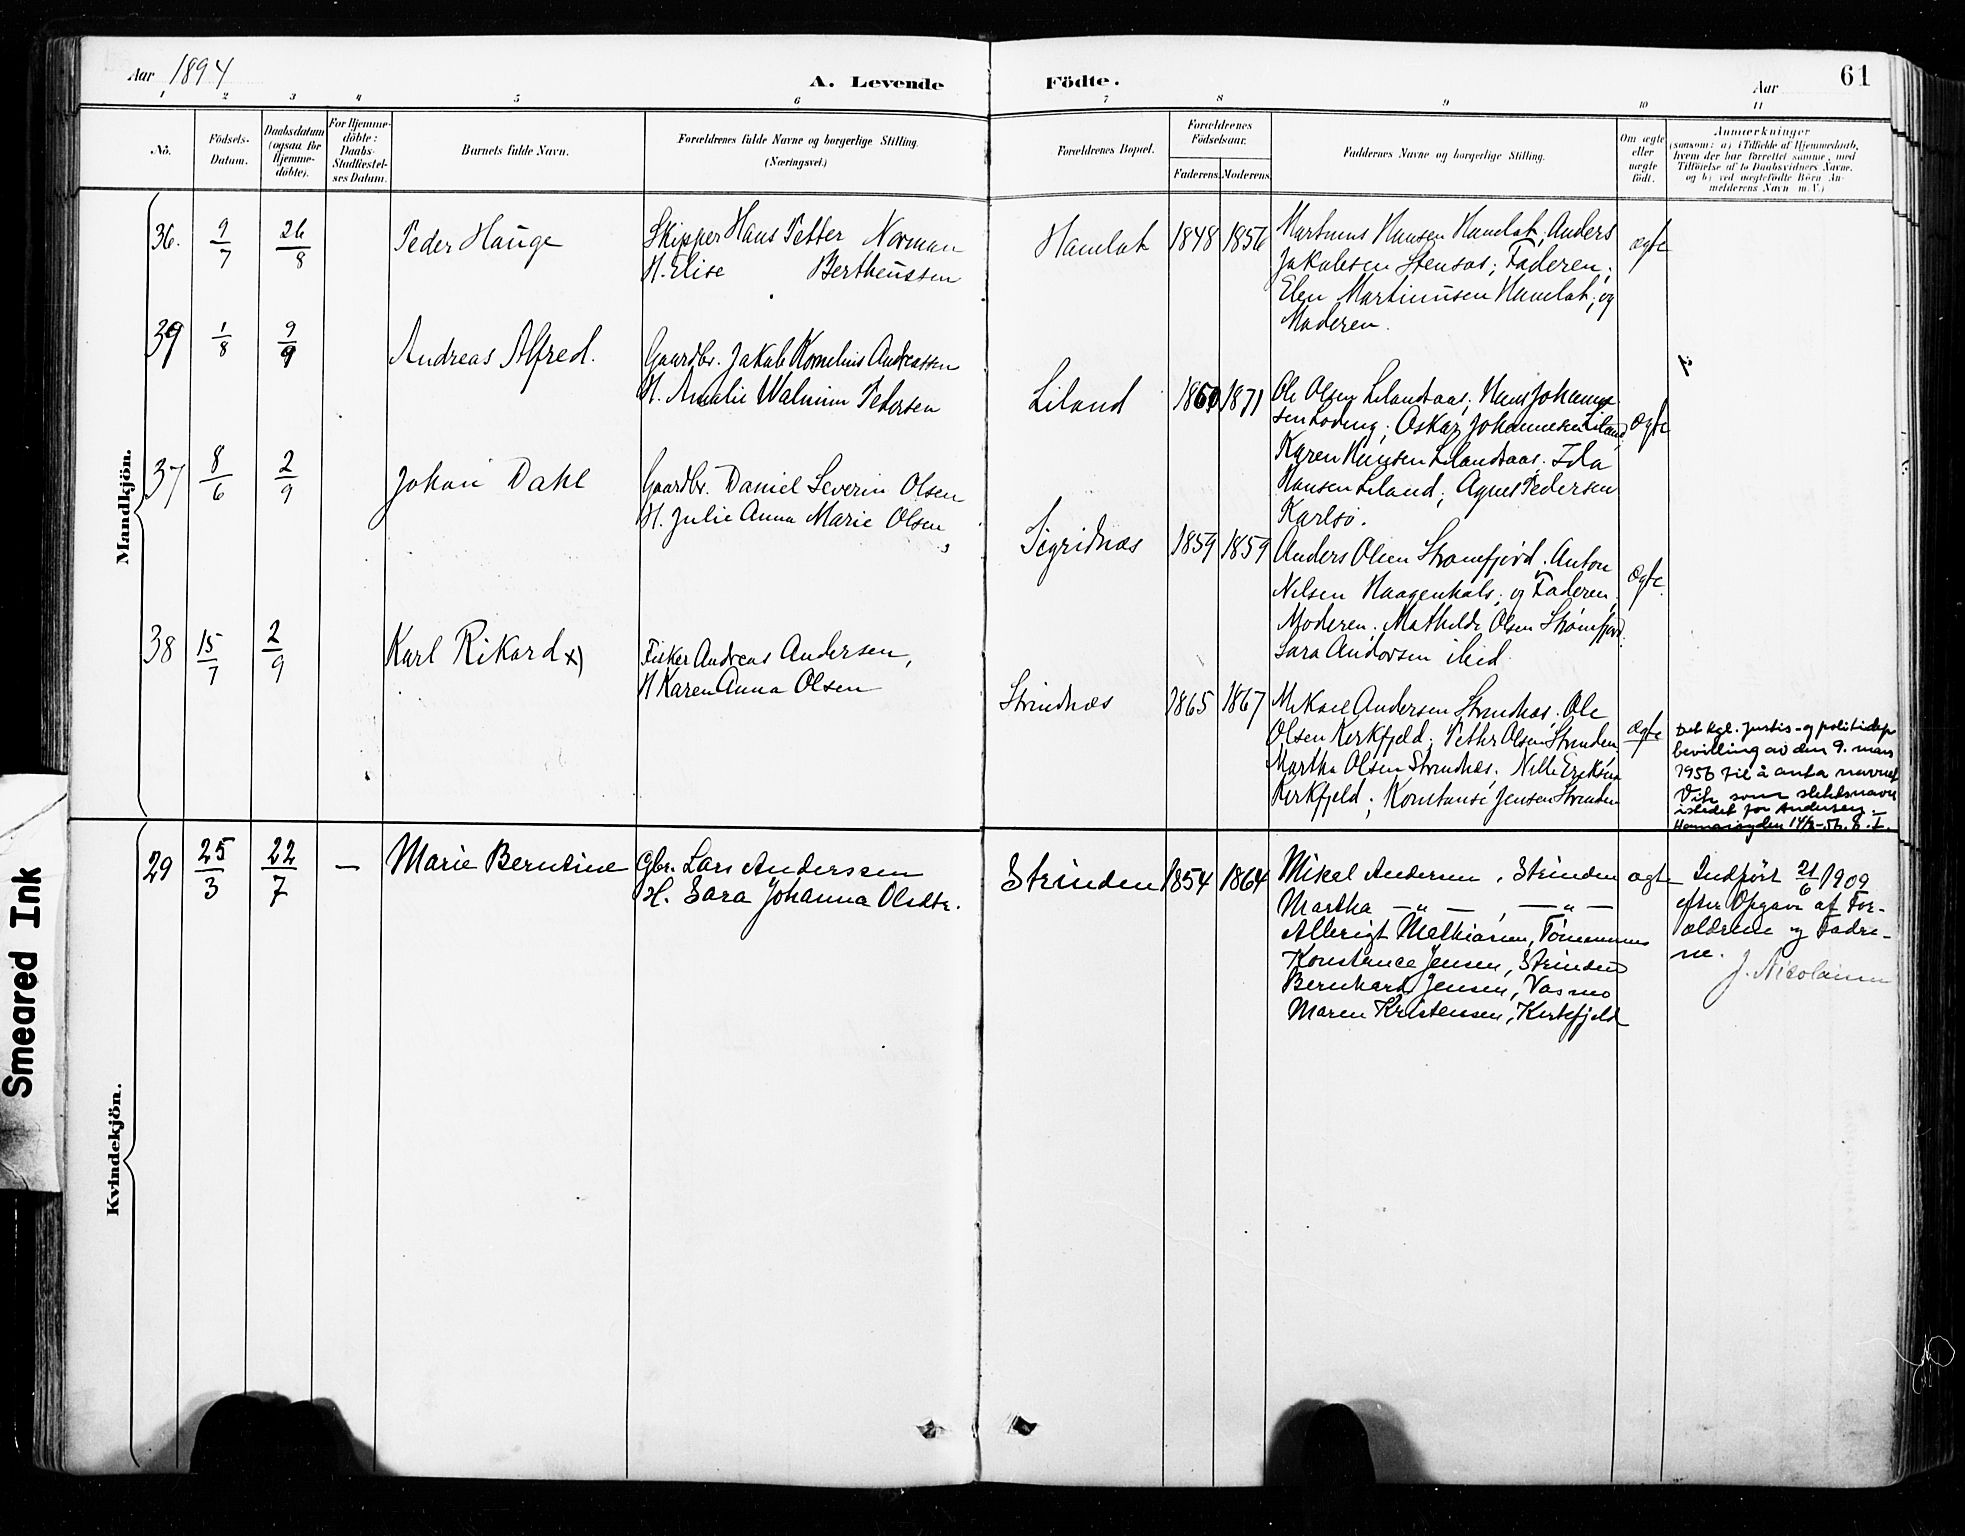 Aar 1894
A. Levende Födte.
Aar 61
1 2 3 4 5 6 7 8 9 10 11
No.
Födsels-
Datum.
Daabsdatum
(ogsaa for
Hjemme-
döbte).
For Hjemme-
döbte:
Daabs-
Stadfæstel-
ses Datum.
Barnets fulde Navn.
Forældrenes fulde Navne og borgerlige Stilling.
(Næringsvei.)
Forældrenes Bopæl.
Forældrenes
Födselsaar.
Faderens. Moderens.
Faddernes Navne og borgerlige Stilling.
Om ægte
eller
uægte
födt.
Anmærkninger
(saasom: a) i Tilfælde af Hjemmedaab,
hvem der har forrettet samme, med
Tilföielse af to Daabsvidners Navne,
og b) ved uægtefödte Börn An-
melderens Navn m. V.)
Mandkjön.
36. 9/7 26/8 Peder Hauge
Skipper Hans Petter Norman
H. Elise Bertheussen
Hamlot 1848 1856
Martinus Hansen Hamlot; Anders
Jakobsen Stensos; Faderen;
Elen Martinusen Hamlot; og
Moderen.
ægte
39 1/8 9/9 Andreas Alfred.
Gaardbr. Jakob Kornelius Andreassen
H. Amalie Pedersen
Liland 1860 1871
Ole Olsen Lilandaas; Hans Johannes
sen Loding; Oskar Johannesen Liland;
Karen Hansen Lilandaas; Ida
Hansen Liland; Agnes Pedersen
Karlsö.
ægte
37 8/6 2/9 Johan Dahl
Gaardbr. Daniel Severin Olsen
H. Julie Anna Marie Olsen
Sigridnæs 1859 1859
Anders Olsen Strømfjord; Anton
Nilsen Haagenhals; og Faderen.
Moderen; Mathilde Olsen Strømfjord.
Sara Andorsen ibid.
ægte.
38 15/7 2/9 Karl Rikard x)
Fisker Andreas Andersen,
H Karen Anna Olsen
Strindnæs 1865 1867
Mikael Andersen Strindnæs; Ole
Olsen Kerkfjeld; Petter Olsen Strinden
Martha Olsen Strindnæs; Nille Eriksen
Kerkfjeld; Konstanse Jensen Strinden
ægte
Det kgl. Justis- og politidep
bevilling av den 9. mars
1956 til å anta navnet
Vik som slektsnavn
istedet for Andersen. -
Hamarøy den 14/3-56.
Kvindekjön.
29 25/3 22/7 — Marie Berntine
Gbr. Lars Anderssen
H. Sara Johanna Olsdtr.
Strinden 1854 1864
Mikal Andersen, Strinden
Martha — " —, — " —
Albrigt Mathiasen, Tømmernes
Konstance Jensen, Strinden
Bernhard Jensen, Vasmo
Maren Kristensen, Kirkfjeld
ægte
Indført 21/6 1909
efter Opgave af For-
ældrene og Fadre-
ne.
J. Nicolaisen
Smeared Ink